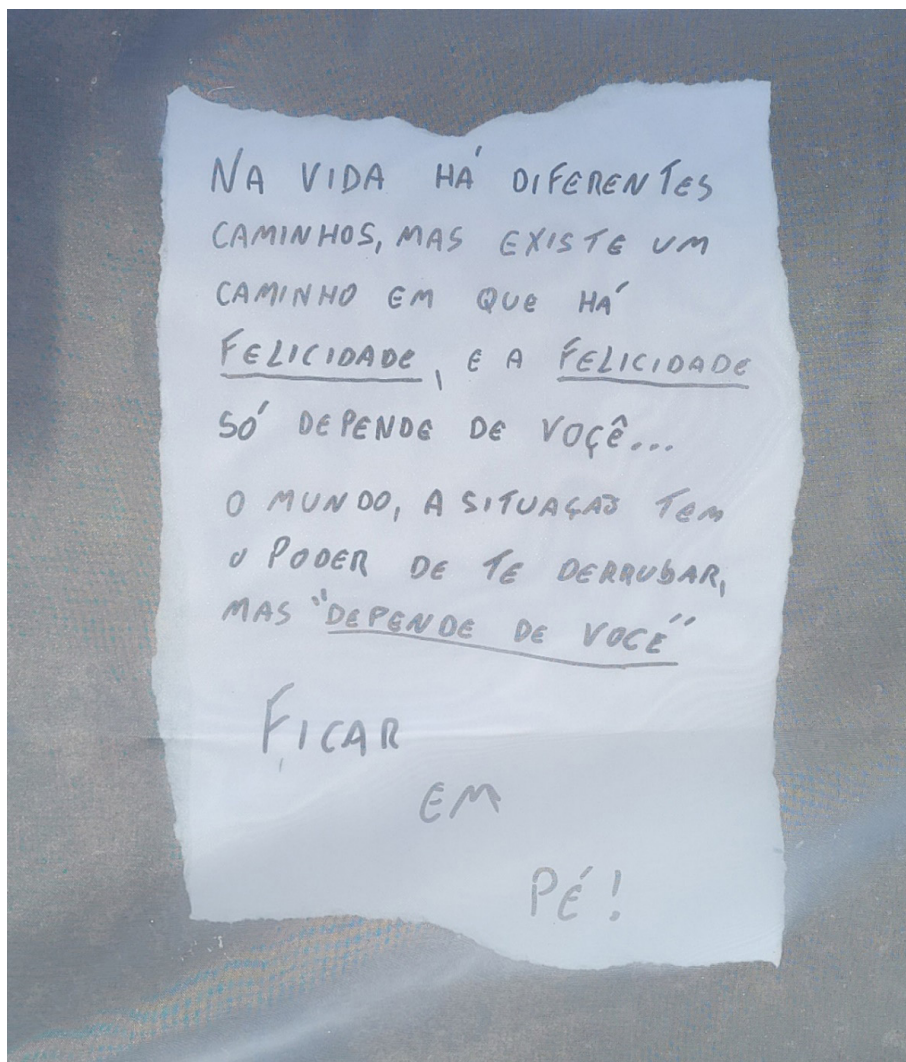 NA VIDA HÁ DIFERENTES
CAMINHOS, MAS EXISTE UM
CAMINHO EM QUE HÁ
FELICIDADE, E A FELICIDADE
SÓ DEPENDE DE VOÇÊ...
O MUNDO, A SITUAÇÃO TEM
O PODER DE TE DERRUBAR,
MAS "DEPENDE DE VOCÊ"
FICAR
EM
PÉ!